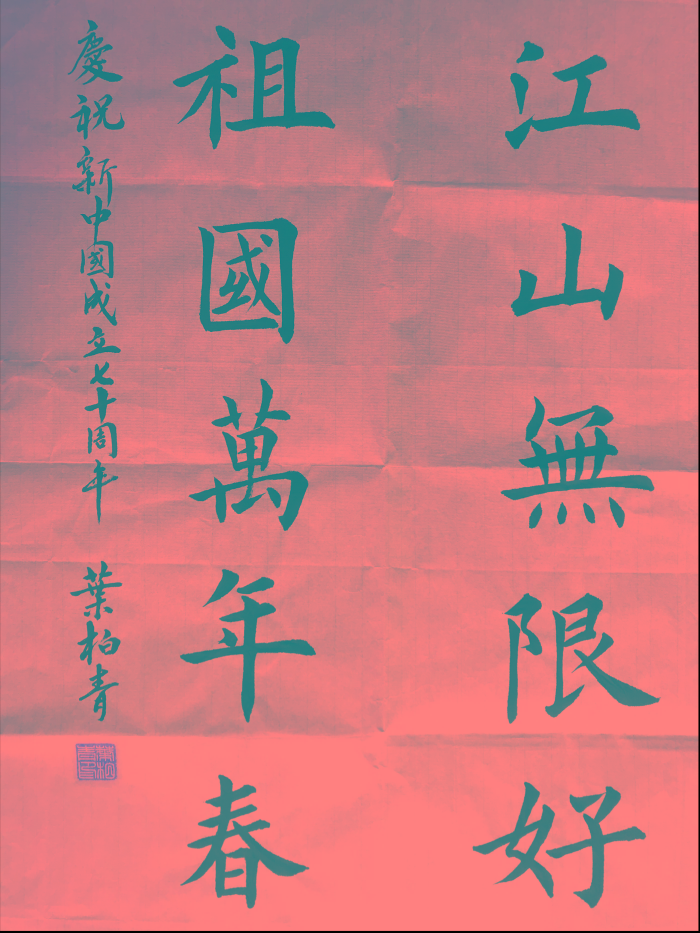 江山無限好
祖國萬年春
慶祝新中國成立七十周年 葉柏青